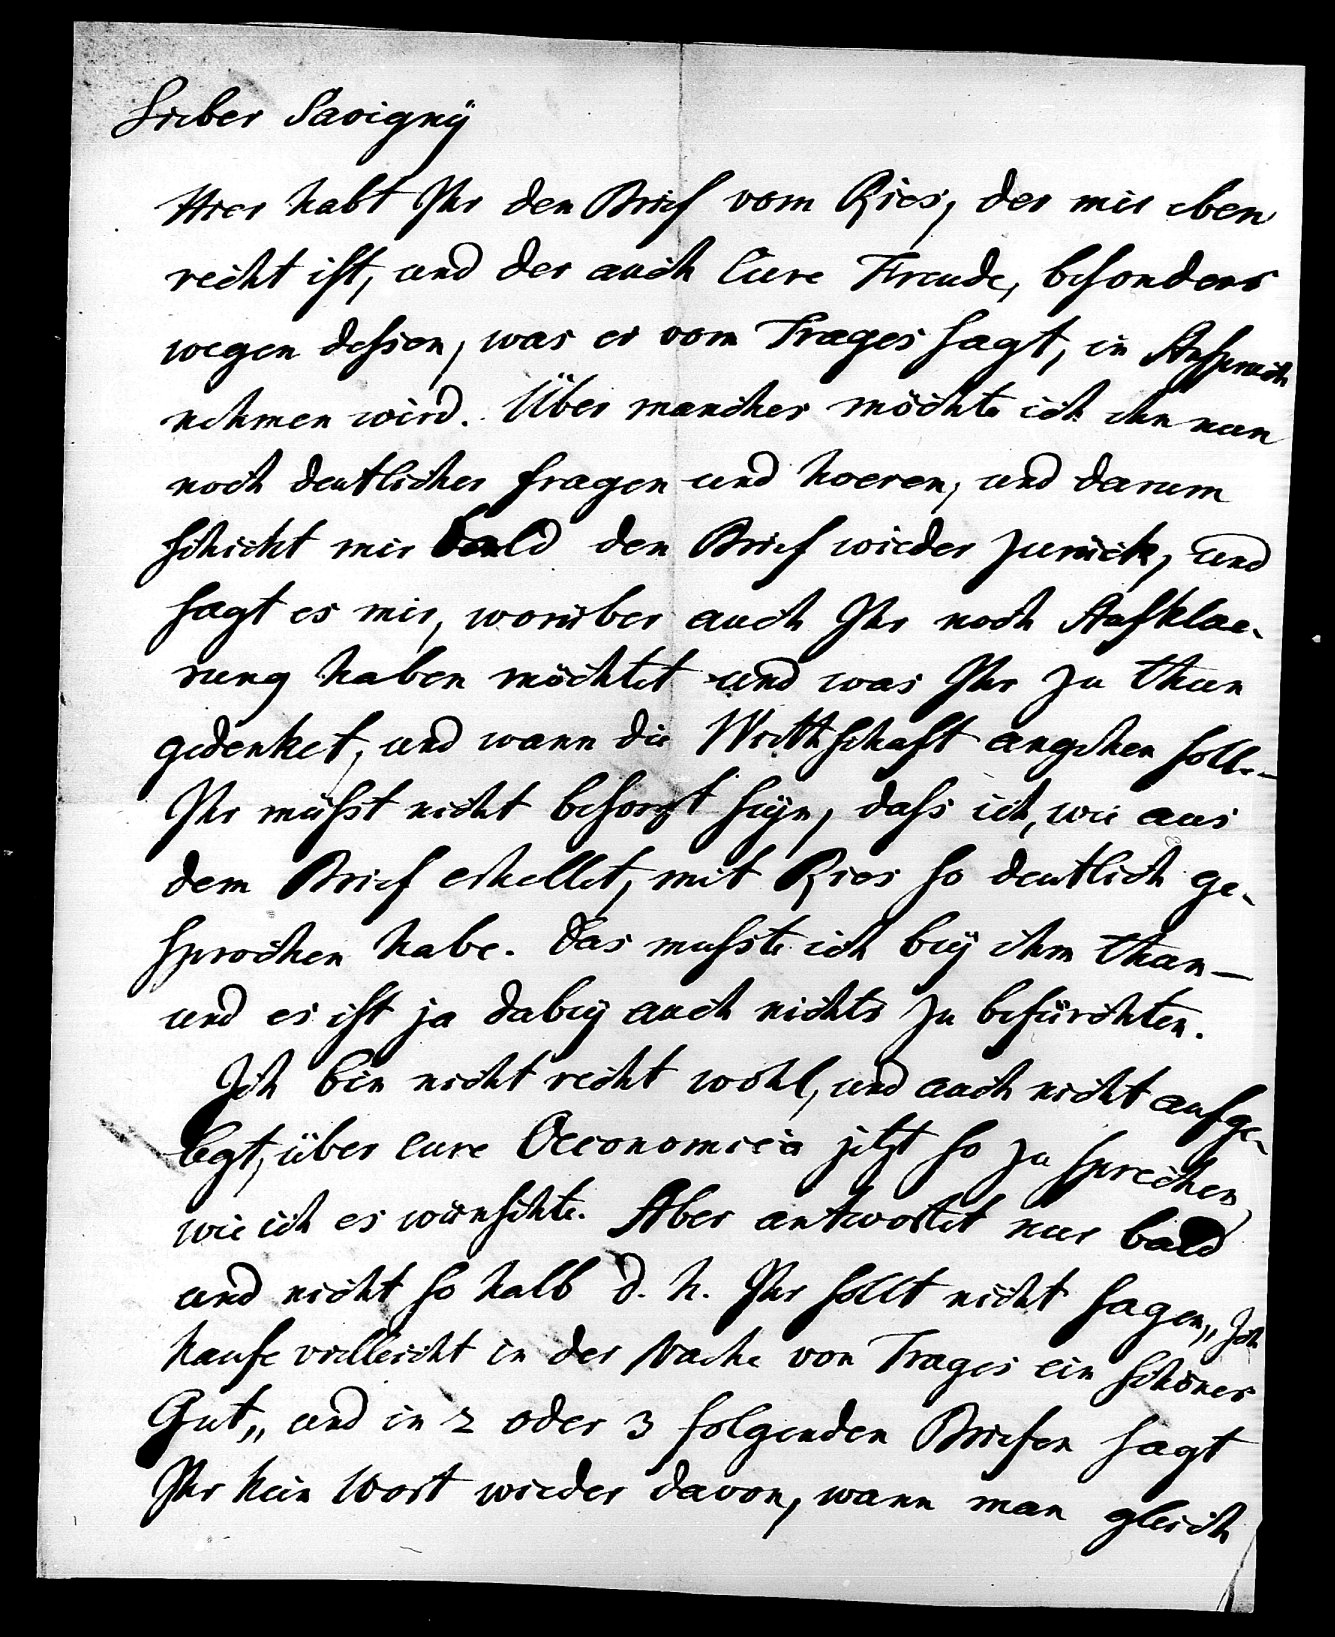 Lieber Savigny
Hier habt Ihr den Brief vom Ries, der mir eben
recht ist, und der auch Eure Freude, besonders
wegen dessen, was er vom Trages sagt, in Anspruch
nehmen wird. Über manches möchte ich ihn nun
noch deutlicher fragen und hoeren, und darum
schickt mir bald den Brief wieder zurück, und
sagt es mir, worüber auch Ihr noch Aufklae-
rung haben möchtet und was Ihr zu thun
gedenket, und wann die Wirthschaft angehen solle –
Ihr müsst nicht besorgt seÿn, dass ich, wie aus
dem Brief erhellet, mit Ries so deutlich ge-
sprochen habe. Das musste ich beÿ ihm thun –
und es ist ja dabeÿ auch nichts zu befürchten.
Ich bin nicht recht wohl, und auch nicht aufge-
legt, über eure Oeconomie jetzt so zu sprechen
wie ich es wünschte. Aber antwortet nur bald
und nicht so halb d. h. Ihr sollt nicht sagen „Ich
kaufe vielleicht in der Naehe von Trages ein schönes
Gut„ und in 2 oder 3 folgenden Briefen sagt
Ihr kein Wort wieder davon, wann man gleich